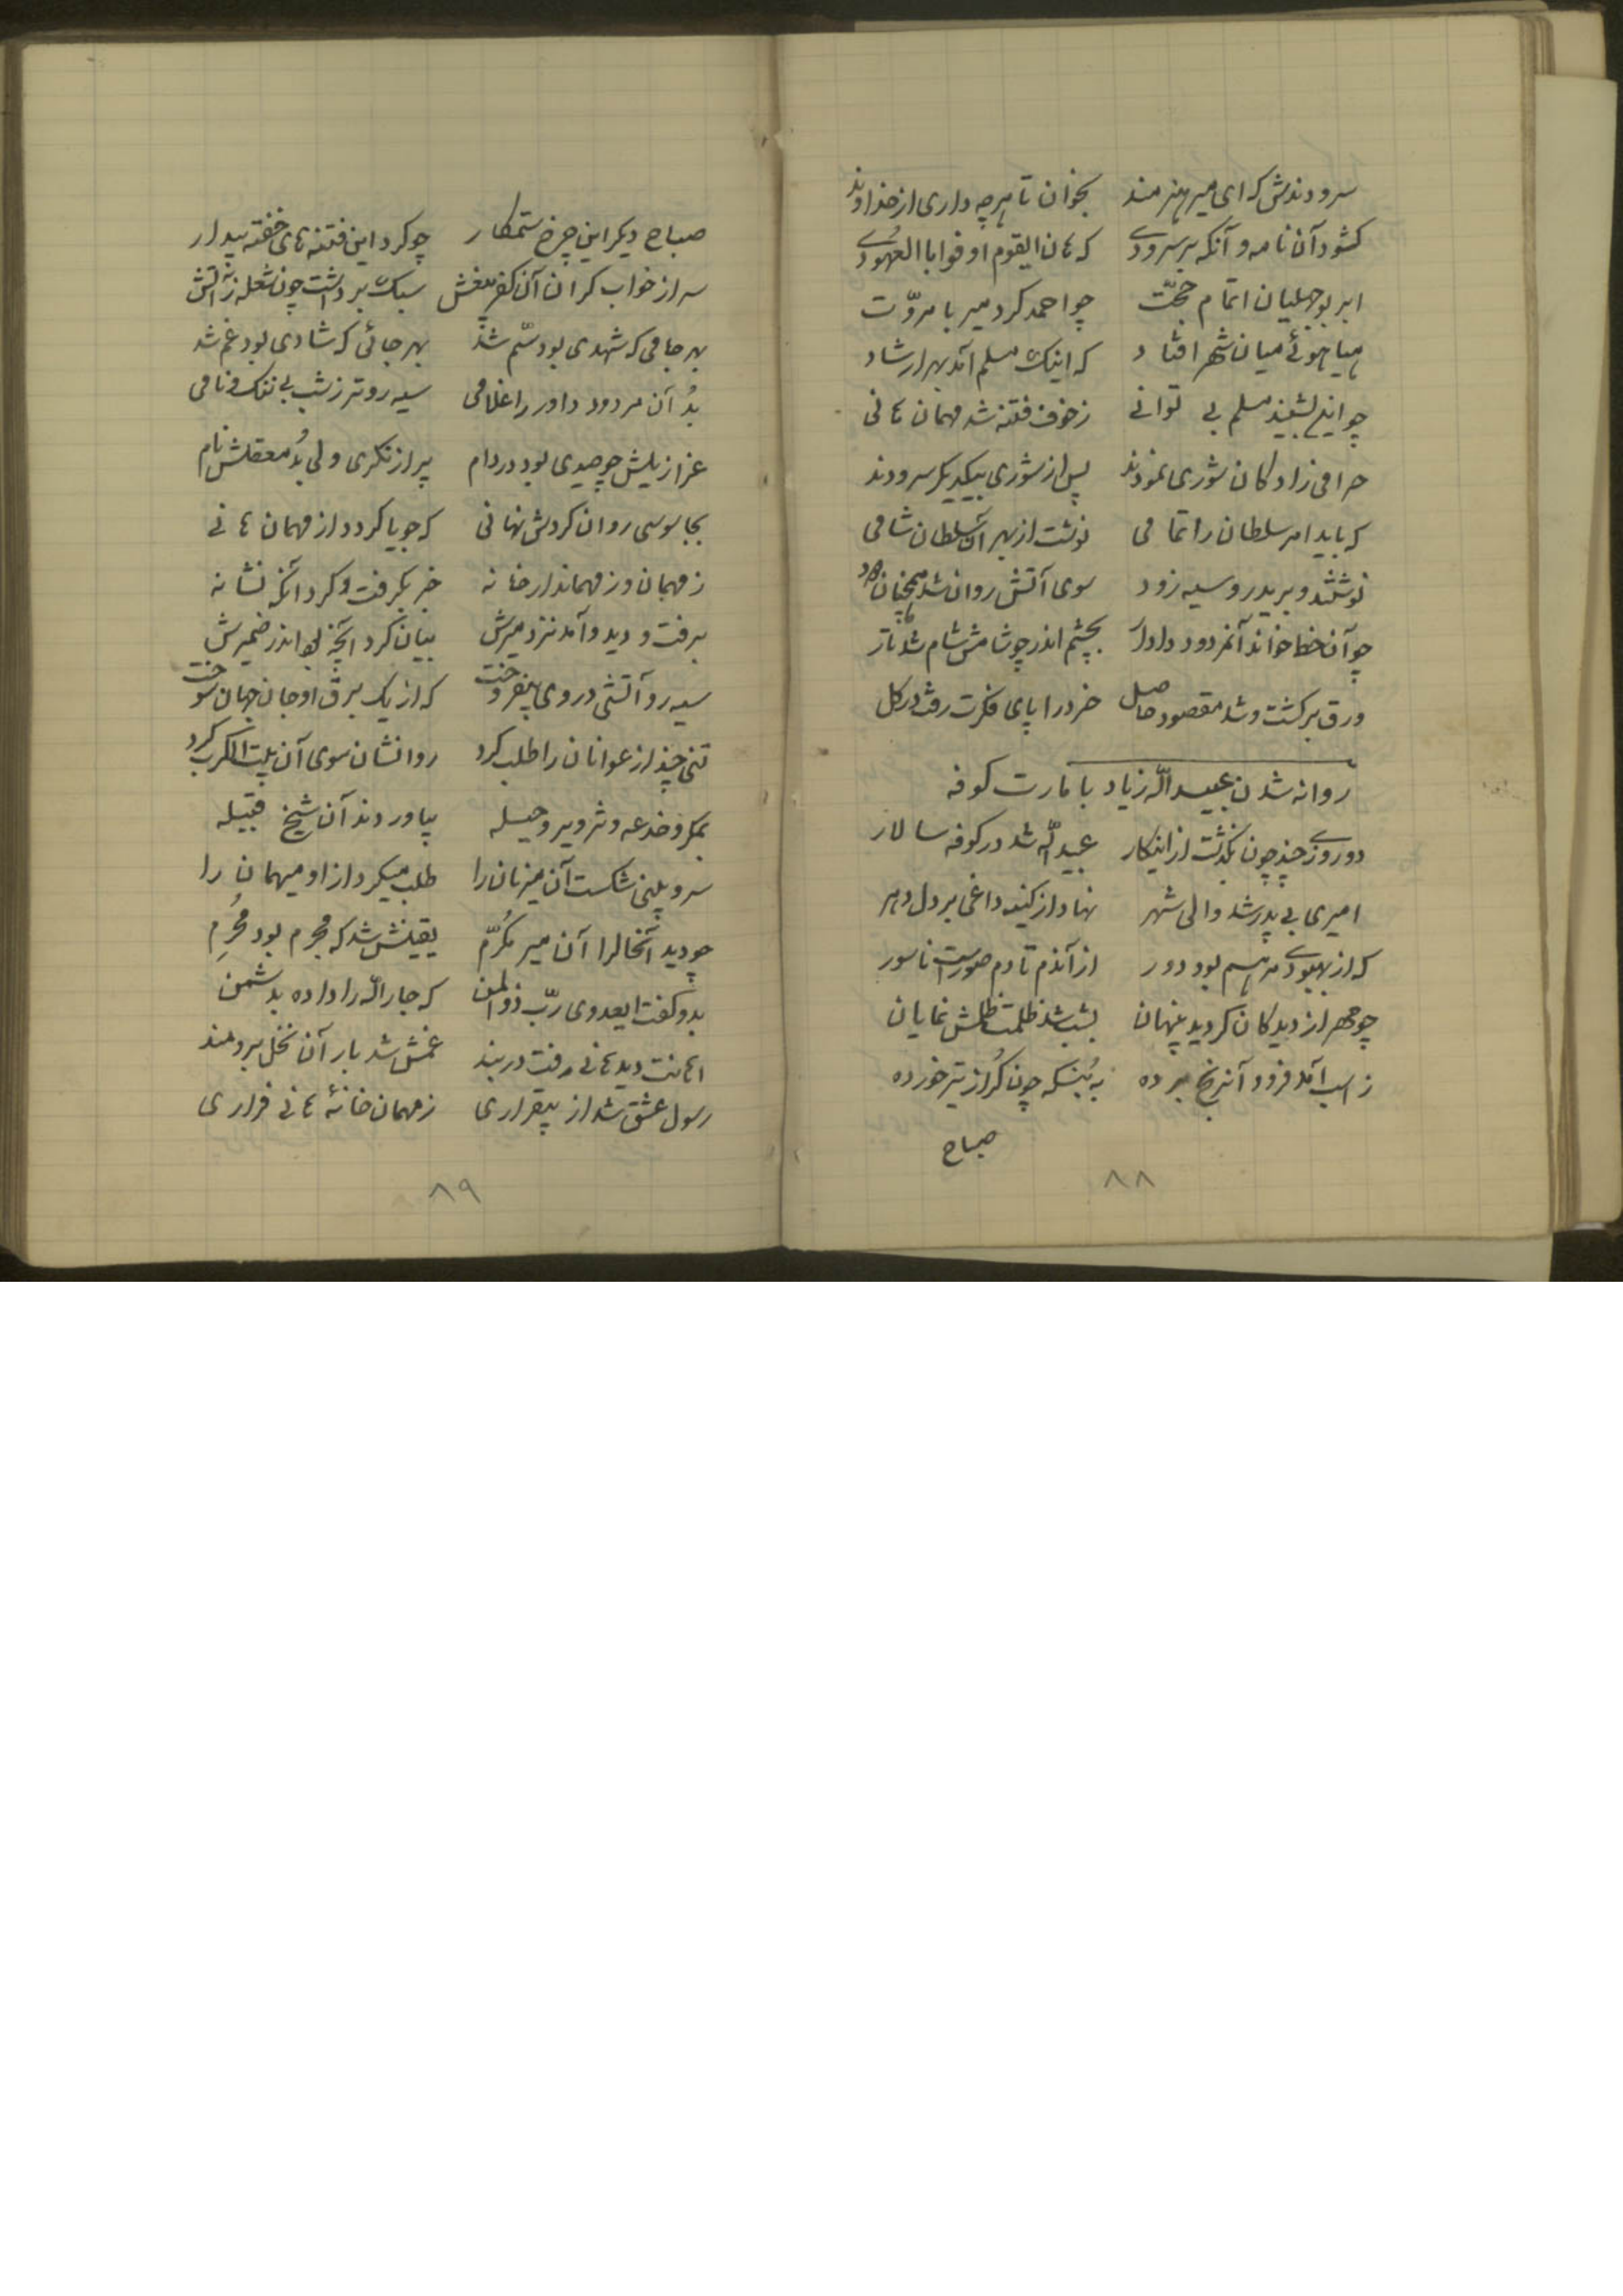 سرودندش که ای میر هنرمند بخوان تا هرچه داری از خداوند
کشود آن نامه و آنکه بر سرودی که هان ایقوم اوفوا بالعهودی
ابر بوجهلیان اتمام حجّت چو احمد کرد میر با مروّت
هیاهوئی میان شهر افتاد که اینک مسلم آمد بهر ارشاد
چو این بشنید مسلم بی توانی ز خوف فتنه شد مهمان هانی
حرامی زادکان شوری نمودند پس از شوری بیکدیکر سرودند
که باید امر سلطان را تمامی نوشت از بهر آن سلطان شامی
نوشتند و برید رو سیه زود سوی آتش روان شد همچنان دود
چو آن خط خواند آنمردود دادار بچشم اندر چو شامش شام شد تار
ورق برکشت و شد مقصود حاصل خرد را پای فکرت رفت در کل
روانه شدن عبید اللّه زیاد بامارت کوفه
دو روزی چند چون بکذشت از اینکار عبید اللّه شد در کوفه سالار
امیری بی پدر شد والی شهر نهاد از کینه داغی بر دل دهر
که از بهبودی مرهم بود دور از آندم تا دم صور است ناسور
چو مهر از دیدکان کردید پنهان بشب شد ظلمت ظلمش نمایان
ز اسب آمد فرود آنرنج برده به بُنکه چون کُراز تیر خورده
صباح
۸۸
صباح دیکر این چرخ ستمکار چو کرد این فتنه های خفته بیدار
سر از خواب کران آن کفر بیغش سبک برداشت چون شعله ز آتش
بهر جامی که شهدی بود سّم شد بهر جائی که شادی بود غم شد
بُد آن مردود داور را غلامی سیه روتر ز شب بی ننک و نامی
عزازیلش چو صیدی بود در دام پر از نکری ولی بُد معقلش نام
بجاسوسی روان کردش نهانی که جویا کردد از مهمان هانی
ز مهمان و ز مهماندار خانه خبر بکرفت و کرد آنکه نشانه
برفت و دید و آمد نزد میرش بیان کرد آنچه بود اندر ضمیرش
سیه رو آتشی در وی بیفروخت که از یک برق او جان جهان سوخت
تنی چند از عوانان را طلب کرد روانشان سوی آن بیت الکرب کرد
بمکر و خدعه و تزویر و حیله بیاوردند آن شیخ قبیله
سر و بینی شکست آن میزبان را طلب میکرد از او میهمان را
چو دید آنحالرا آن میر مکرّم یقینش شد که مجرم بود محُرِم
بدو کفت ایعدوی ربّ ذو المن که جار اللّه را داده بدشمن
اهانت دید هانی رفت در بند غمش شد بار آن نخل برومند
رسول عشق شد از بیقراری ز مهمان خانهٔ هانی فراری
۸۹